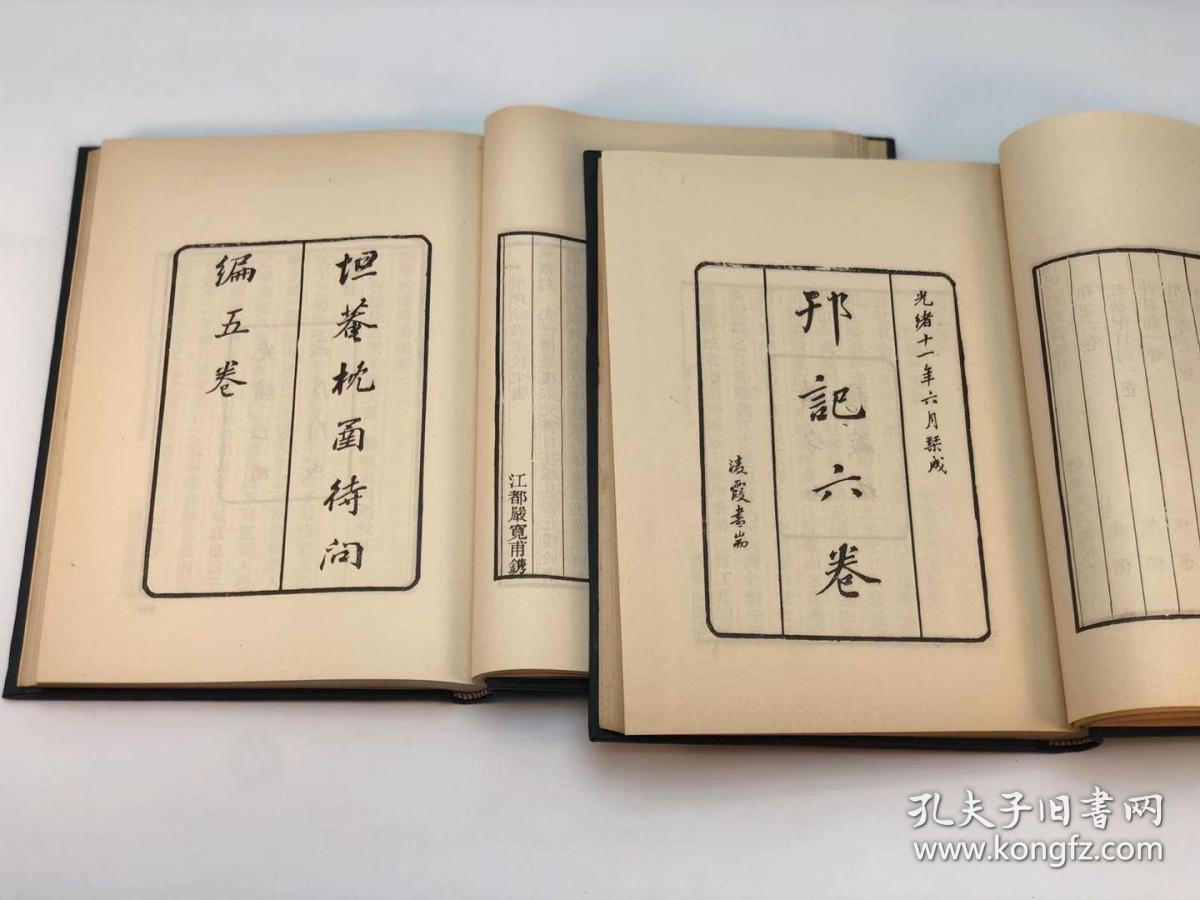 坦菴枕圅待問
編五卷
江都嚴寬甫鐫
光緒十一年六月栞成
邗記六卷
淩霞書耑
孔夫子旧书网
www.kongfz.com